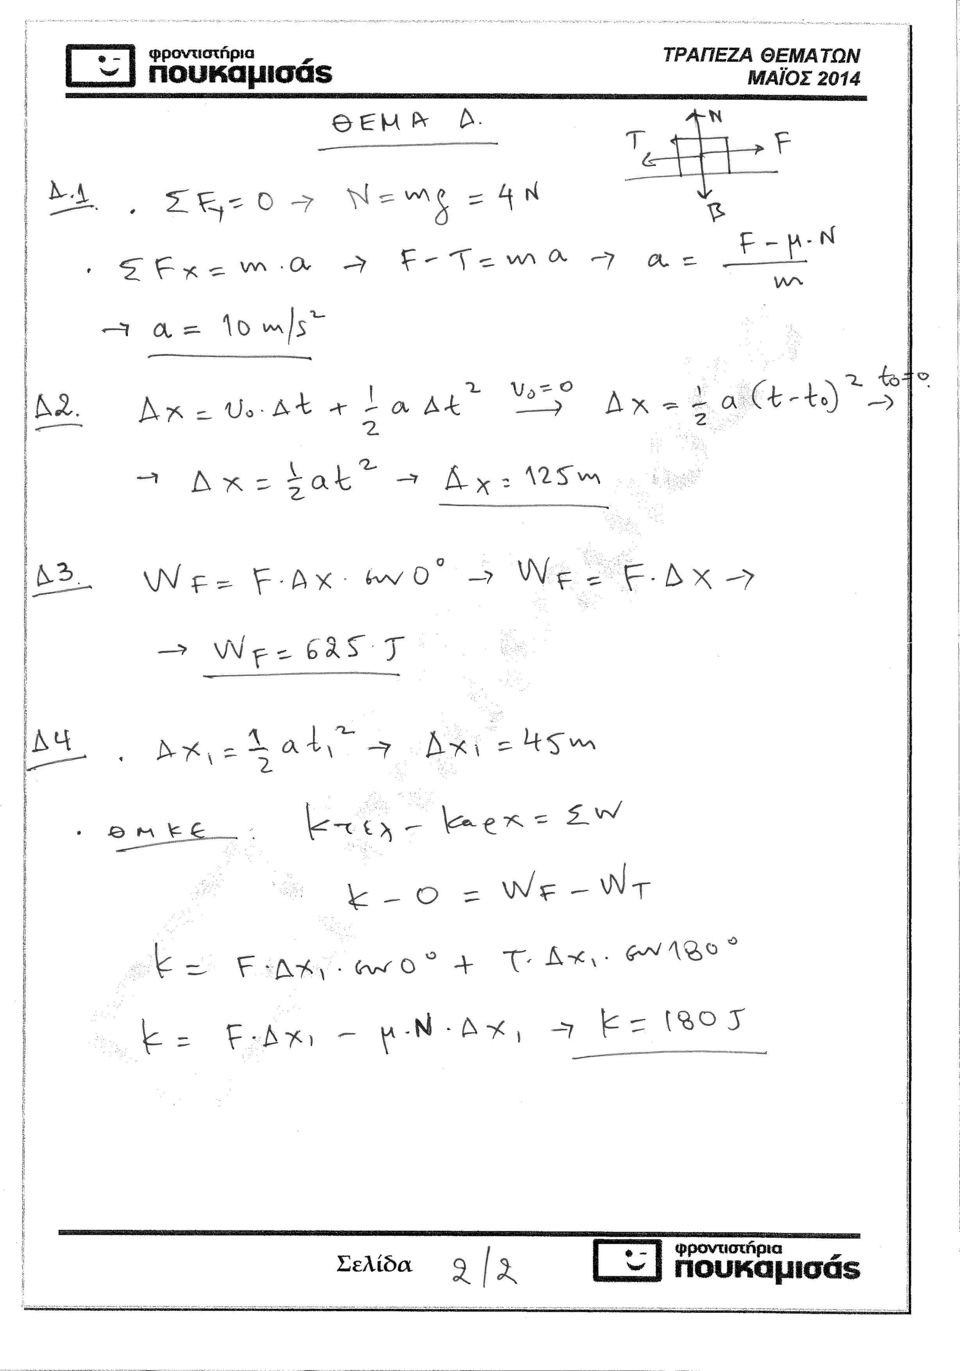 φροντιστήρια
πουκαμισάς
ΤΡΑΠΕΖΑ ΘΕΜΑΤΩΝ
ΜΑΪΟΣ 2014
ΘΕΜΑ Δ.
N
T
F
B
Δ.1 . ΣFy=0 → N=mg = 4N
. ΣFx = m·a → F-T=ma → a = (F-μ·N)/m
→ a = 10 m/s²
Δ2. Δx = υ₀·Δt + ½ a Δt² →(υ₀=0) Δx = ½ a (t-t₀)² →(t₀=0.)
→ Δx = ½ at² → Δx = 125m
Δ3. WF = F·Δx·συν0° → WF = F·Δx →
→ WF = 625 J
Δ4 . Δx₁ = ½ at₁² → Δx₁ = 45m
. ΘΜΚΕ : kτελ - kαρχ = ΣW
k - 0 = WF - WT
k = F·Δx₁·συν0° + T·Δx₁·συν180°
k = F·Δx₁ - μ·N·Δx₁ → k = 180 J
Σελίδα 2/2
φροντιστήρια
πουκαμισάς